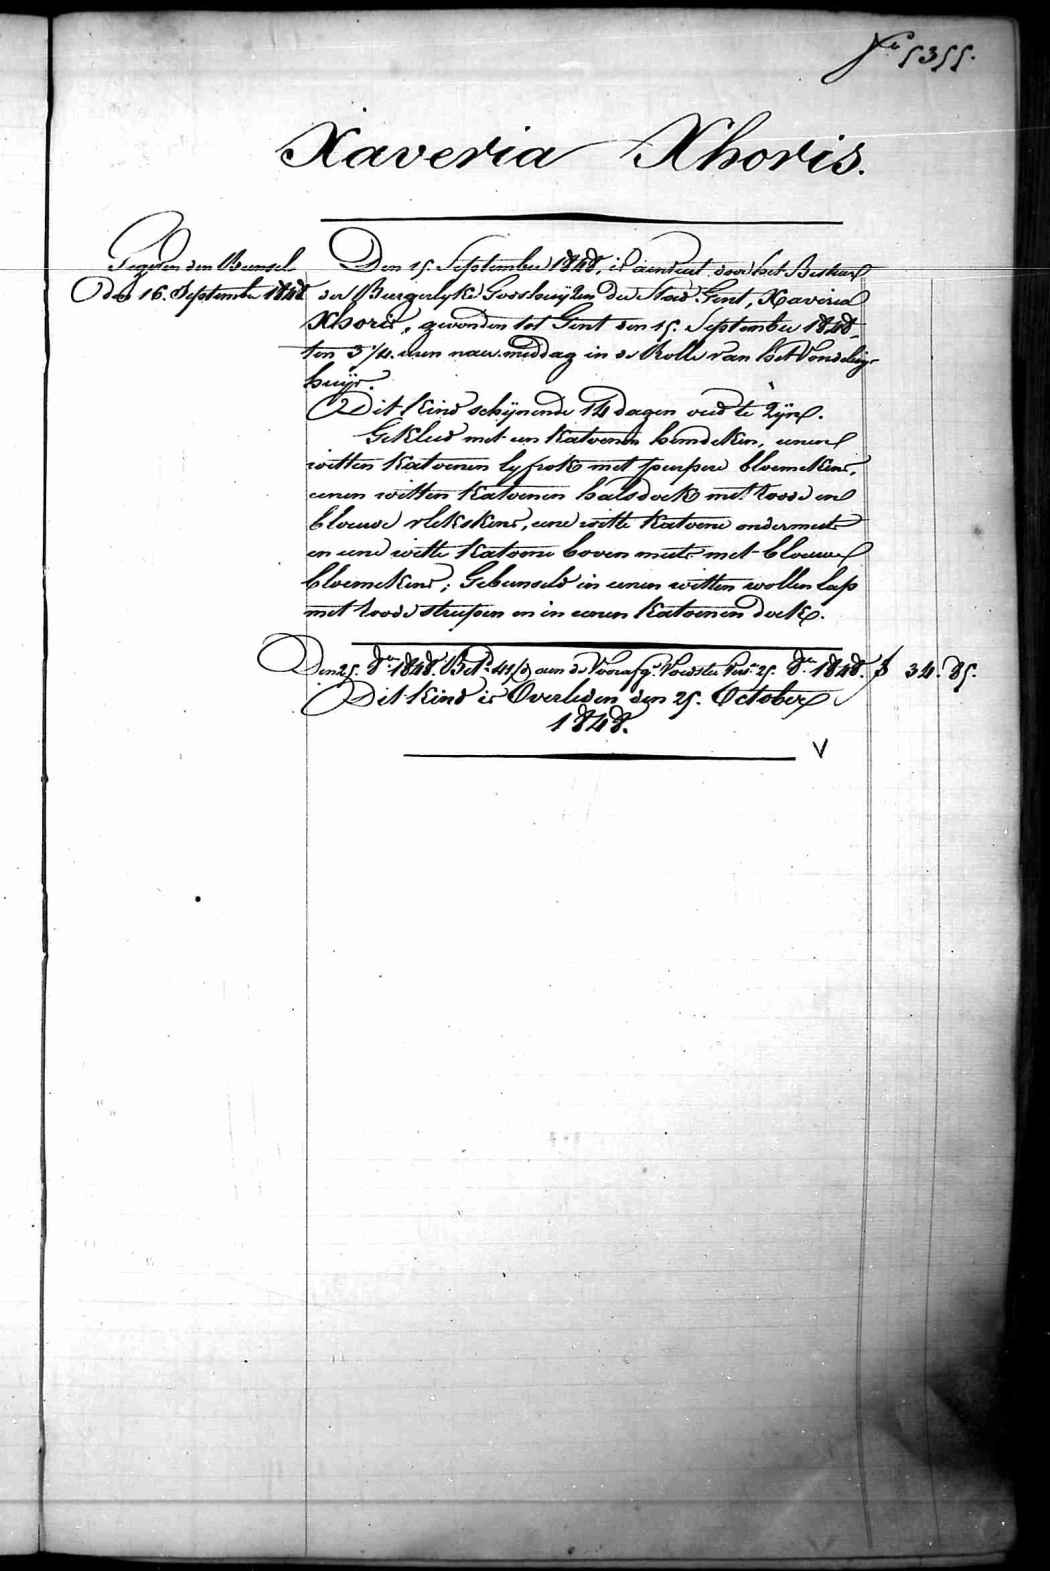 Fo 5355.
Xaveria Xhoris.
Gegeven den Bunsel
den 16. September 1848
Den 15. September 1848, is aenveert door het Bestuer
der Burgerlyke Godshuyzen der Stad Gent, Xaveria
Xhoris, gevonden tot Gent den 15. September 1848
ten 3 1/4 uren naer middag in de Rolle van het Vondeling
huys.
Dit kind schijnende 14 dagen oud te zijn.
Gekleed met een katoenen hemdeken, eenen
witten katoenen lyfrok met purpere bloemekens,
eenen witten katoenen halsdoek met roode en
blouwe vlekskens, eene witte katoene ondermuts
en eene witte katoene boven muts met blouwe
bloemekens; Gebunseld in eenen witten wollen lap
met roode streepen en in eenen katoenen doek.
Den 25. 8re 1848. Bet. aen de Voedster 25. 8re 1848. f 34. 85.
Dit kind is Overleden den 25. October
1848.
V